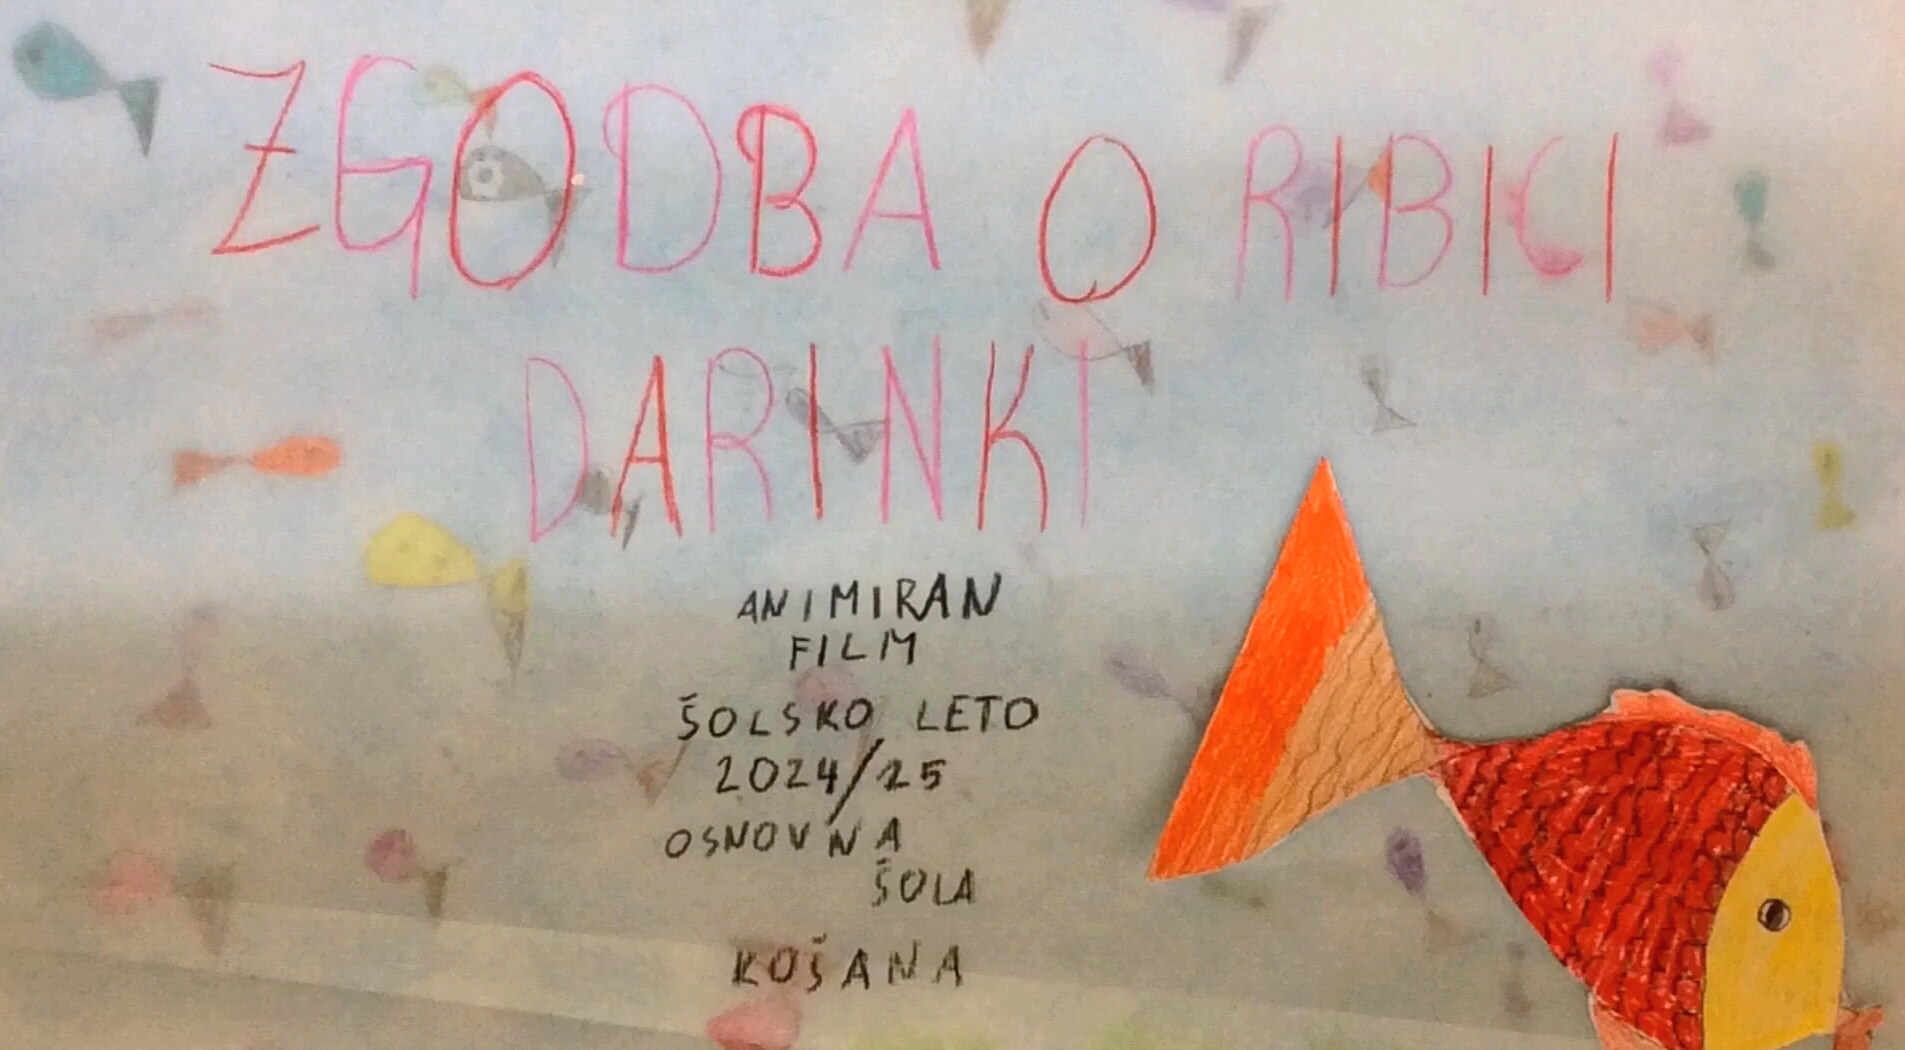 ZGODBA O RIBICI
DARINKI
ANIMIRAN
FILM
ŠOLSKO LETO
2024/25
OSNOVNA
ŠOLA
KOŠANA